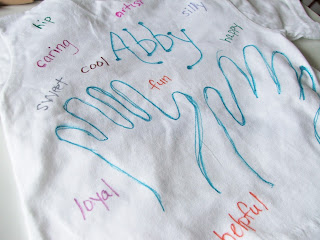 hip
artist
silly
caring
Abby
happy
cool
sweet
fun
loyal
helpful